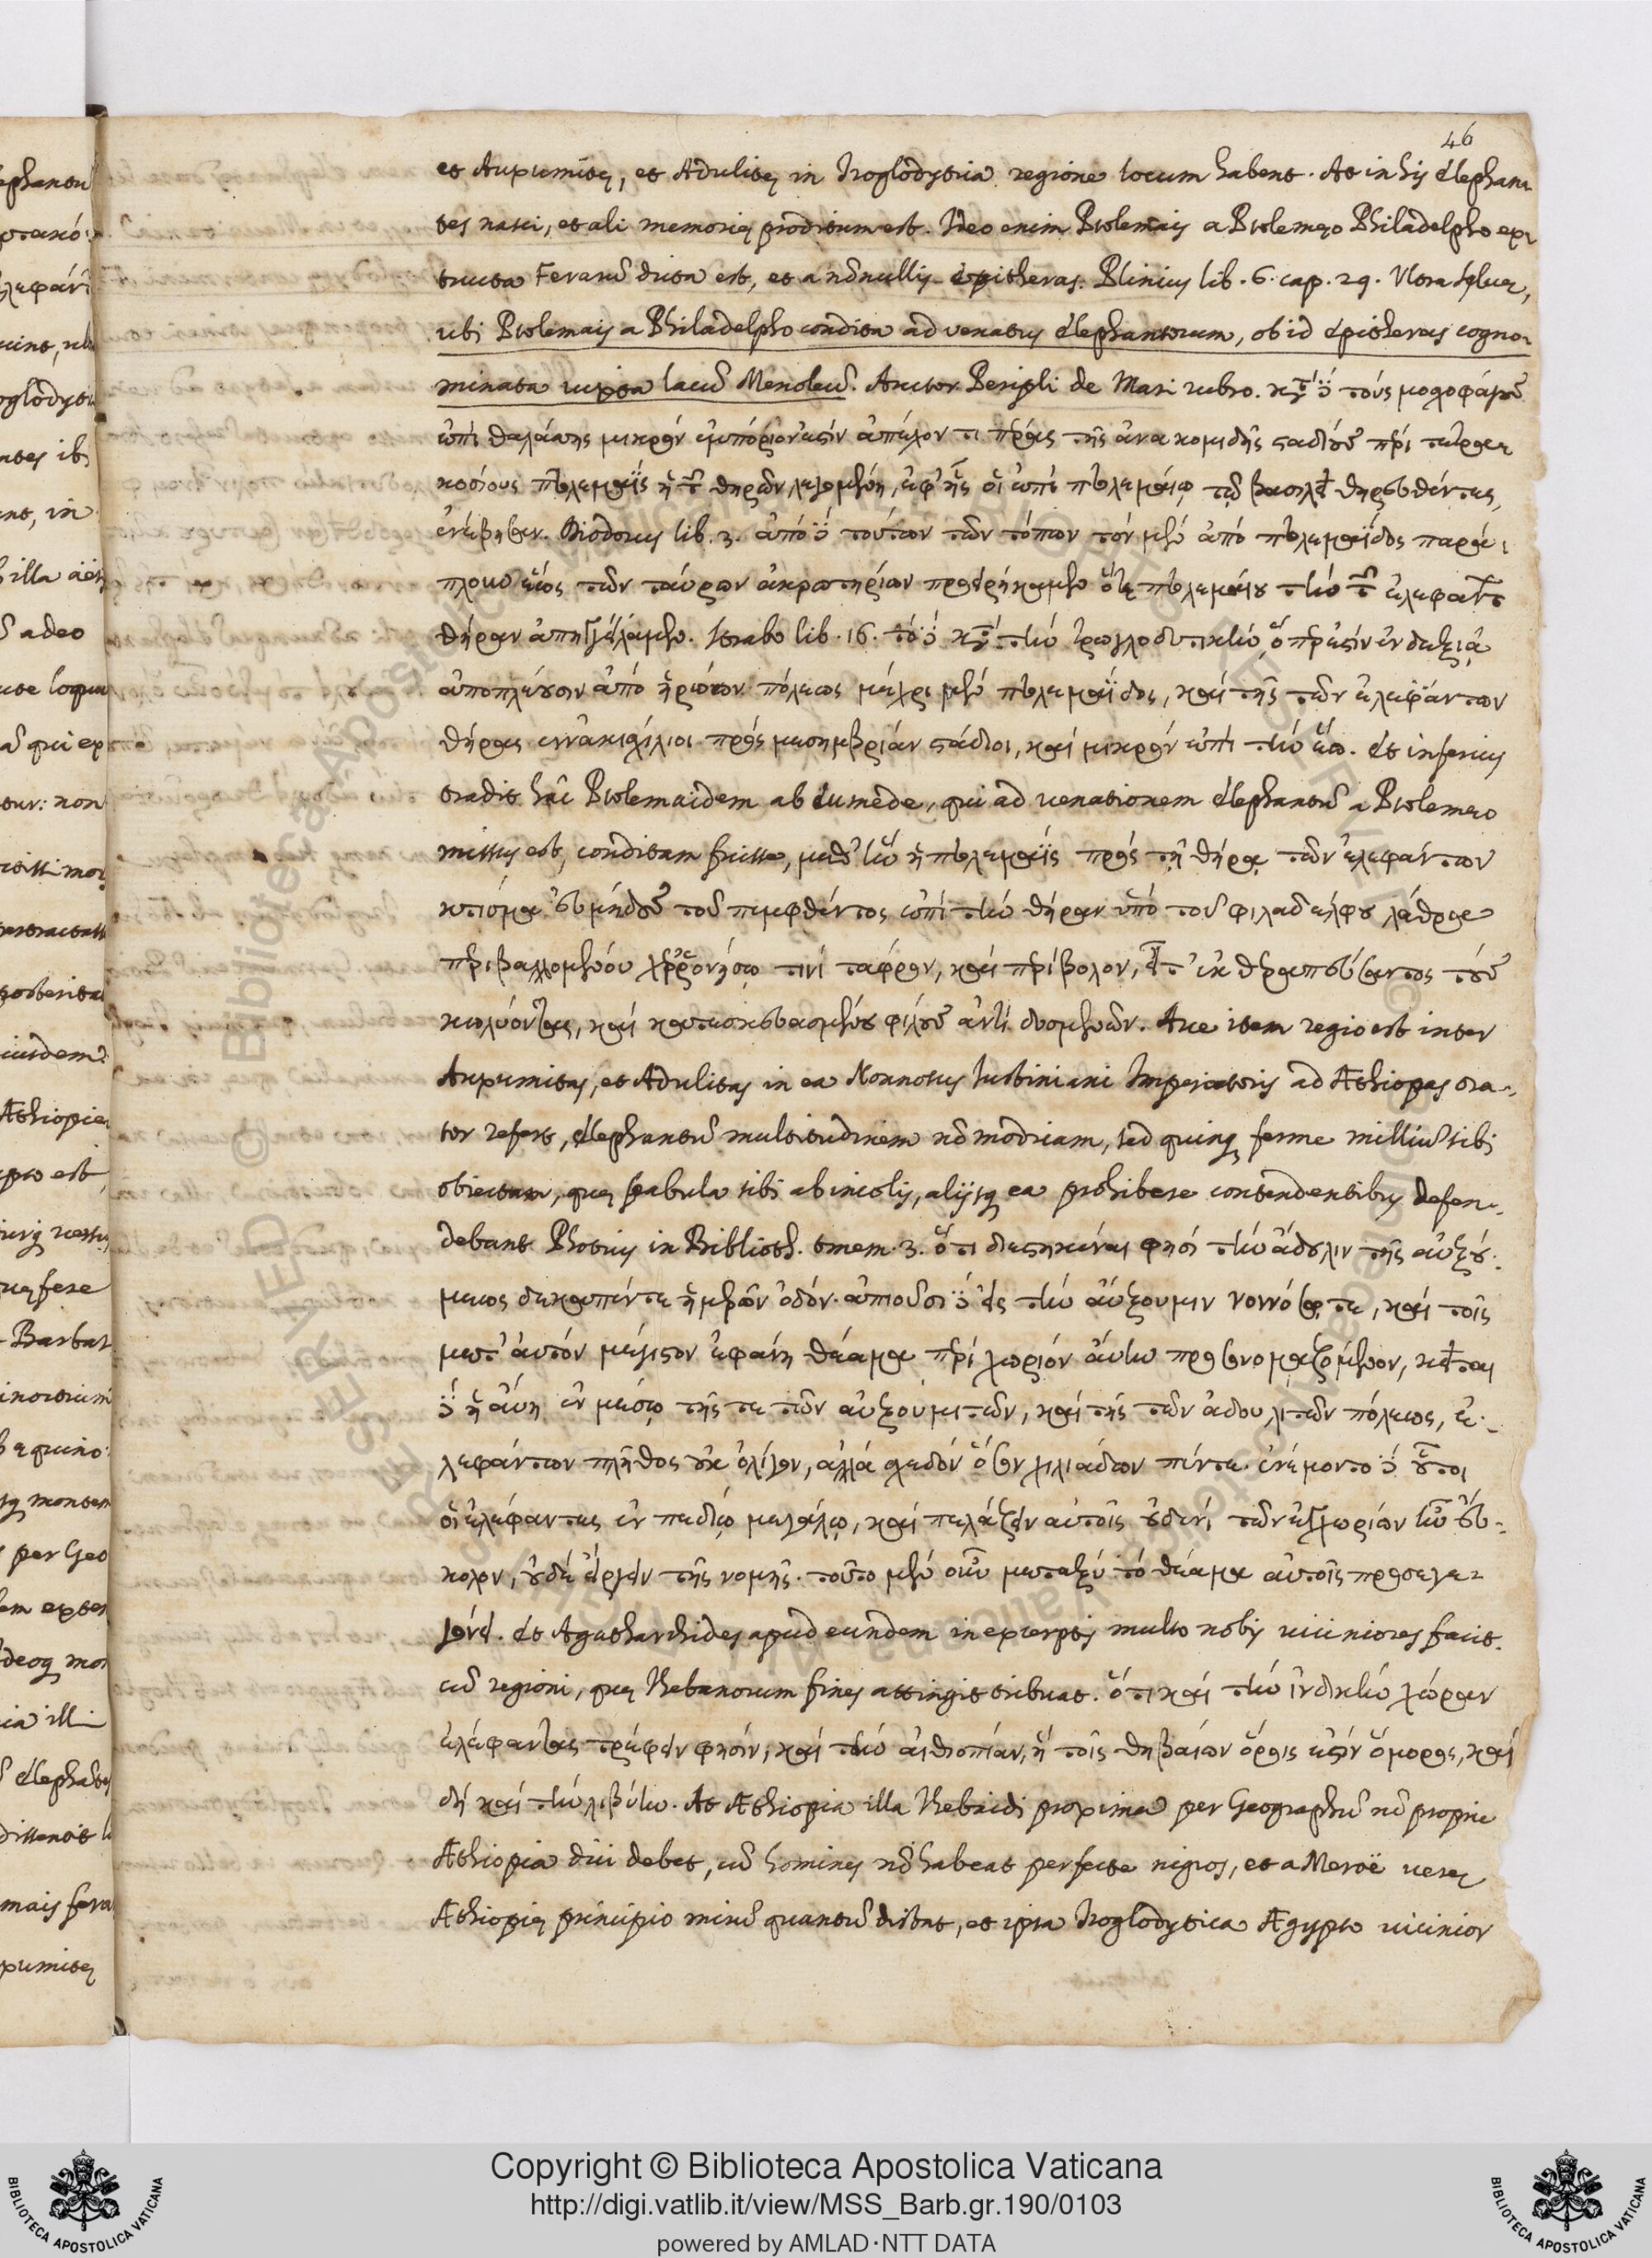 46
et Auxumitę, et Adulitę in Troglodytica regione locum habent. At in his Elephan-
tes nasci, et ali memorię proditum est. Ideo enim Ptolemais a Ptolemęo Philadelpho ex-
tructa Ferarũ dicta est, et a nõnullis epitheras. Plinius lib. 6. cap. 29.
ubi Ptolemais a Philadelpho condita ad venatus Elephantorum, ob id Epitheras cogno-
minata iuxta lacũ Monoleũ. Auctor Peripli de Mari rubro. τοὺς μοσχοφάγους
ἐπὶ θαλάσσης μικρὸν ἐμπόριόν ἐστιν ἀπέχον τι πέρας τῆς ἀνακομιδῆς σταδίους περὶ τετρακι
κοσίους πτολεμαῒς ἡ τῶν θηρῶν λεγομένη, ἐφ' ἧς οἱ ἐπὶ πτολεμαίῳ τῷ βασιλεῖ θηρευθέντες
ἀνέβησαν. Diodorus lib. 3. ἀπὸ δὲ τούτων τῶν τόπων τὸν μὲν ἀπὸ πτολεμαΐδος παρά-
πλουν ἕως τῶν ταύρων ἀκρωτηρίων προειρήκαμεν ὅτε πτολεμαίου τὴν τῶν ἐλεφάντων
θήραν ἀπηγγείλαμεν. Strabo lib. 16. τὸ δὲ κατὰ τὴν τρωγλοδυτικὴν, ὅπερ ἐστὶν ἐν δεξιᾷ
ἀποπλέουσιν ἀπὸ ἡρώων πόλεως μέχρι μὲν πτολεμαΐδος, καὶ τῆς τῶν ἐλεφάντων
θήρας ἐννακισχίλιοι πρὸς μεσημβρίαν στάδιοι, καὶ μικρὸν ἐπὶ τὴν ἕω. Et inferius
tradit hãc Ptolemaidem ab Eumede, qui ad venationem Elephantũ a Ptolemęo
missus est, conditam fuisse, μεθ' ἣν ἡ πτολεμαῒς πρὸς τῇ θήρᾳ τῶν ἐλεφάντων
κτίσμα εὐμήδους τοῦ πεμφθέντος ἐπὶ τὴν θήραν ὑπὸ τοῦ φιλαδέλφου λάθρα
περιβαλλομένου χερρονήσῳ τινὶ τάφρον, καὶ περίβολον, εἶτ' ἐκθεραπεύσαντος τοὺς
κωλύοντας, καὶ κατασκευασμένου φίλους ἀντὶ δυσμενῶν. Aue item regio est inter
Auxumitas, et Adulitas in ea Nonnosus Iustiniani Imperatoris ad Æthiopas ora-
tor refert, Elephantũ multitudinem nõ modicam, sed quinq; ferme milliũ sibi
obiectam, quę pabula sibi ab incolis, alijsq; ea prohibere contendentibus defen-
debant Photius in Biblioth. tmem. 3. ὅτι διεστηκέναι φησὶ τὴν ἄδουλιν τῆς αὐξού-
μεως δεκαπέντε ἡμερῶν ὁδόν. ἀπιοῦσι δὲ εἰς τὴν αὔξουμιν νοννόσῳ τε, καὶ τοῖς
μετ' αὐτὸν μέγιστον ἐφάνη θέαμα περὶ χωρίον αὔην προσονομαζόμενον, κεῖται
δὲ ἡ αὔη ἐν μέσῳ τῆς τε τῶν αὐξουμιτῶν, καὶ τῆς τῶν ἀδουλιτῶν πόλεως, ἐ-
λεφάντων πλῆθος οὐκ ὀλίγον, ἀλλὰ σχεδὸν ὅσον χιλιάδων πέντε. ἐνέμοντο δὲ οὗτοι
οἱ ἐλέφαντες ἐν πεδίῳ μεγάλῳ, καὶ πελάζειν αὐτοῖς οὐδενὶ τῶν ἐγχωρίων ἦν εὔ-
κολον, οὐδὲ εἴργειν τῆς νομῆς. τοῦτο μὲν οὖν μεταξὺ τὸ θέαμα αὐτοῖς προσεγε-
γόνει. Et Agatharchides apud eundem in excerptis multo nobis viciniores facit.
cũ regioni, quę Thebanorum fines attingit tribuat. ὅτι καὶ τὴν ἰνδικὴν χώραν
ἐλέφαντας τρέφειν φησὶν, καὶ τὴν αἰθιοπίαν, ἣ τοῖς θηβαίων ὅροις ἐστὶν ὅμορος, καὶ
δὴ καὶ τὴν λιβύην. At Æthiopia illa Thebaidi proxima per Geographũ nõ proprie
Æthiopia dici debet, cũ homines nõ habeat perfecte nigros, et a Meroë verę
Æthiopię principio minũ quantũ distat, et ipsa Troglodytica Ægypto vicinior
Copyright © Biblioteca Apostolica Vaticana
http://digi.vatlib.it/view/MSS_Barb.gr.190/0103
powered by AMLAD·NTT DATA
BIBLIOTECA APOSTOLICA VATICANA
BIBLIOTECA APOSTOLICA VATICANA